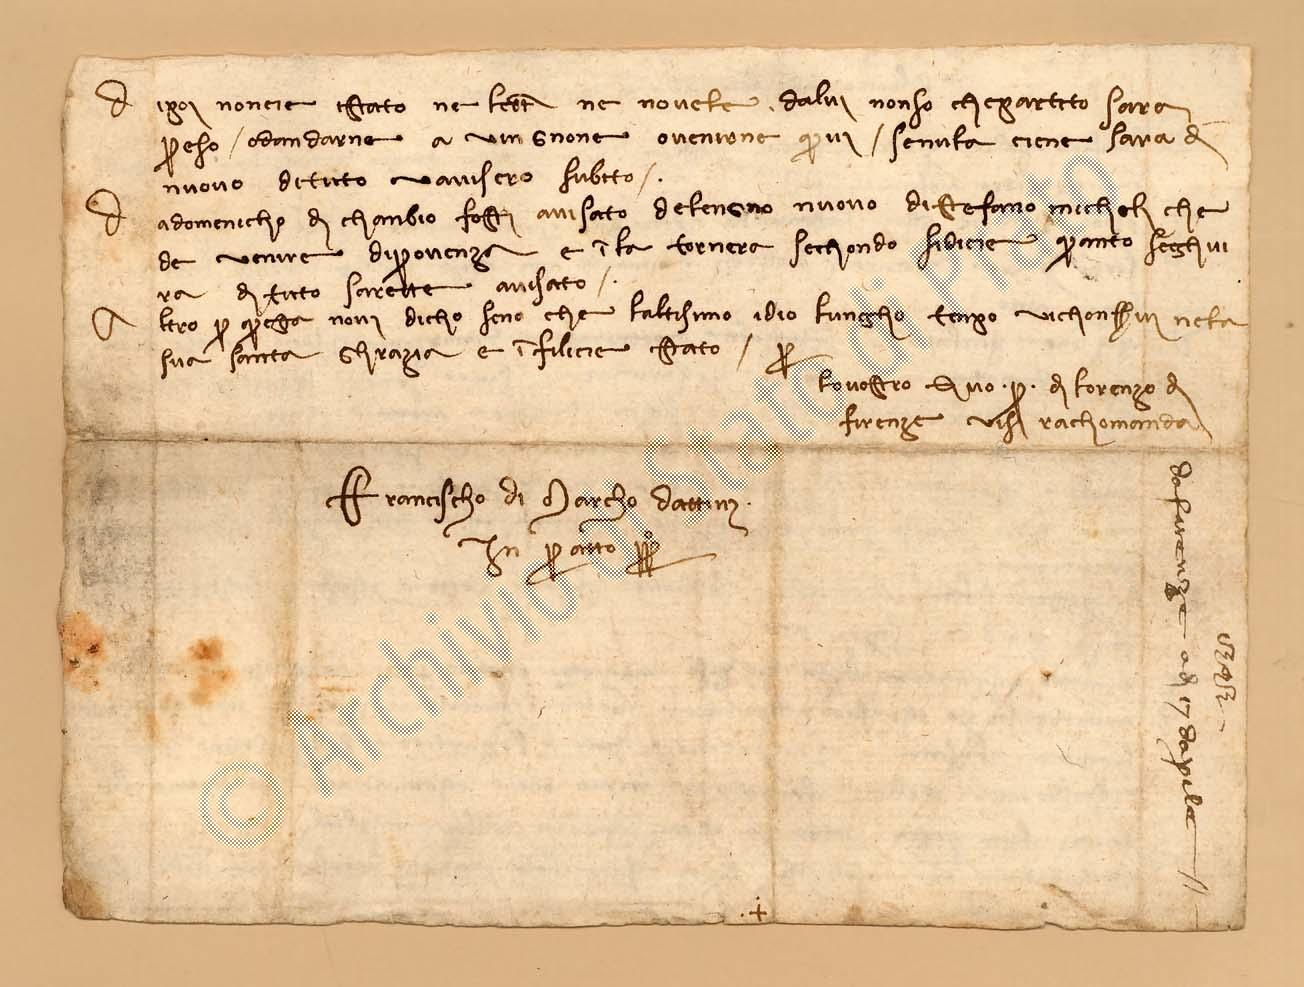 Dipoi noncie istato ne lett ne novele dalui nonso chepartito sara
preso / odandarne a vingnone ovenirne qui / senulla ciene sara di
nuovo di tutto vavisero subito /.
Adomenicho di chanbio fosti avisato delengno nuovo distefano micheli che
de venire diprovenza e i la tornera sechondo sidicie quanto seghui
ra di tutto sarette avisato /.
Altro p questa novi dicho seno che laltisimo idio lungho tenpo vichonservi nela
sua santa ghrazia e i filicie istato /
lovostro di lorenzo di
firenze visi rachomanda
Francischo di Marcho dattini
In prato
da firenze a di 17 daprile
© Archivio di Stato di Prato